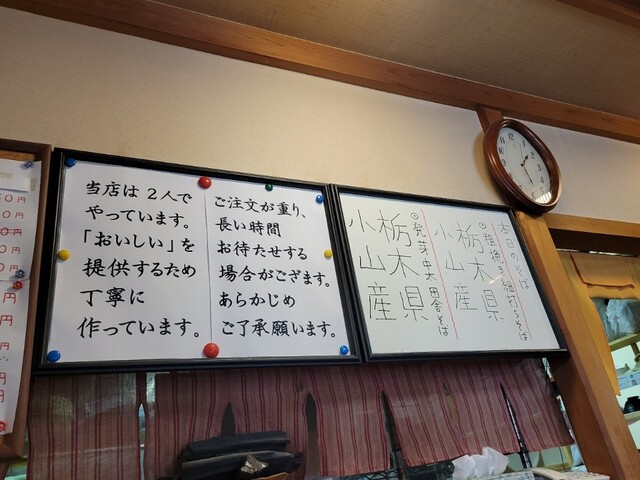 当店は２人で
やっています。
「おいしい」を
提供するため
丁寧に
作っています。
ご注文が重り、
長い時間
お待たせする
場合がございます。
あらかじめ
ご了承願います。
本日のそば
①粗挽き細打ちそば
栃木県
小山産
②発芽
田舎そば
栃木県
小山産